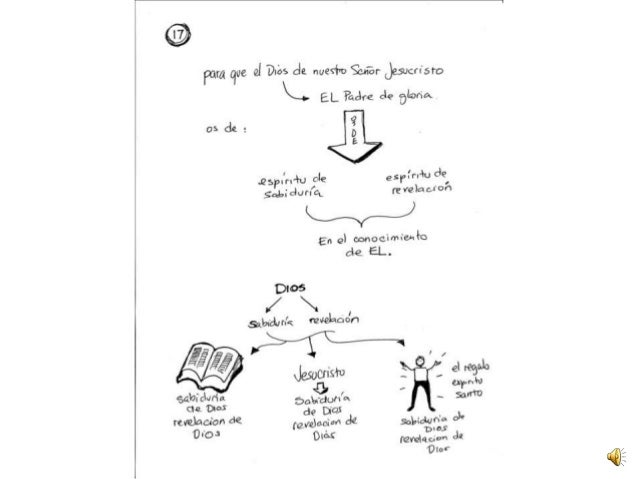 17
para que el Dios de nuestro Señor Jesucristo
EL Padre de gloria.
os de :
DE
espíritu de
sabiduría
espíritu de
revelación
En el conocimiento
de EL.
DIOS
sabiduría revelación
sabiduria
de Dios
revelacion de
Dios
Jesucristo
Sabiduría
de Dios
revelacion de
Diós
el regalo
espiritu
Santo
sabiduria de
Dios
revelacion de
Dios